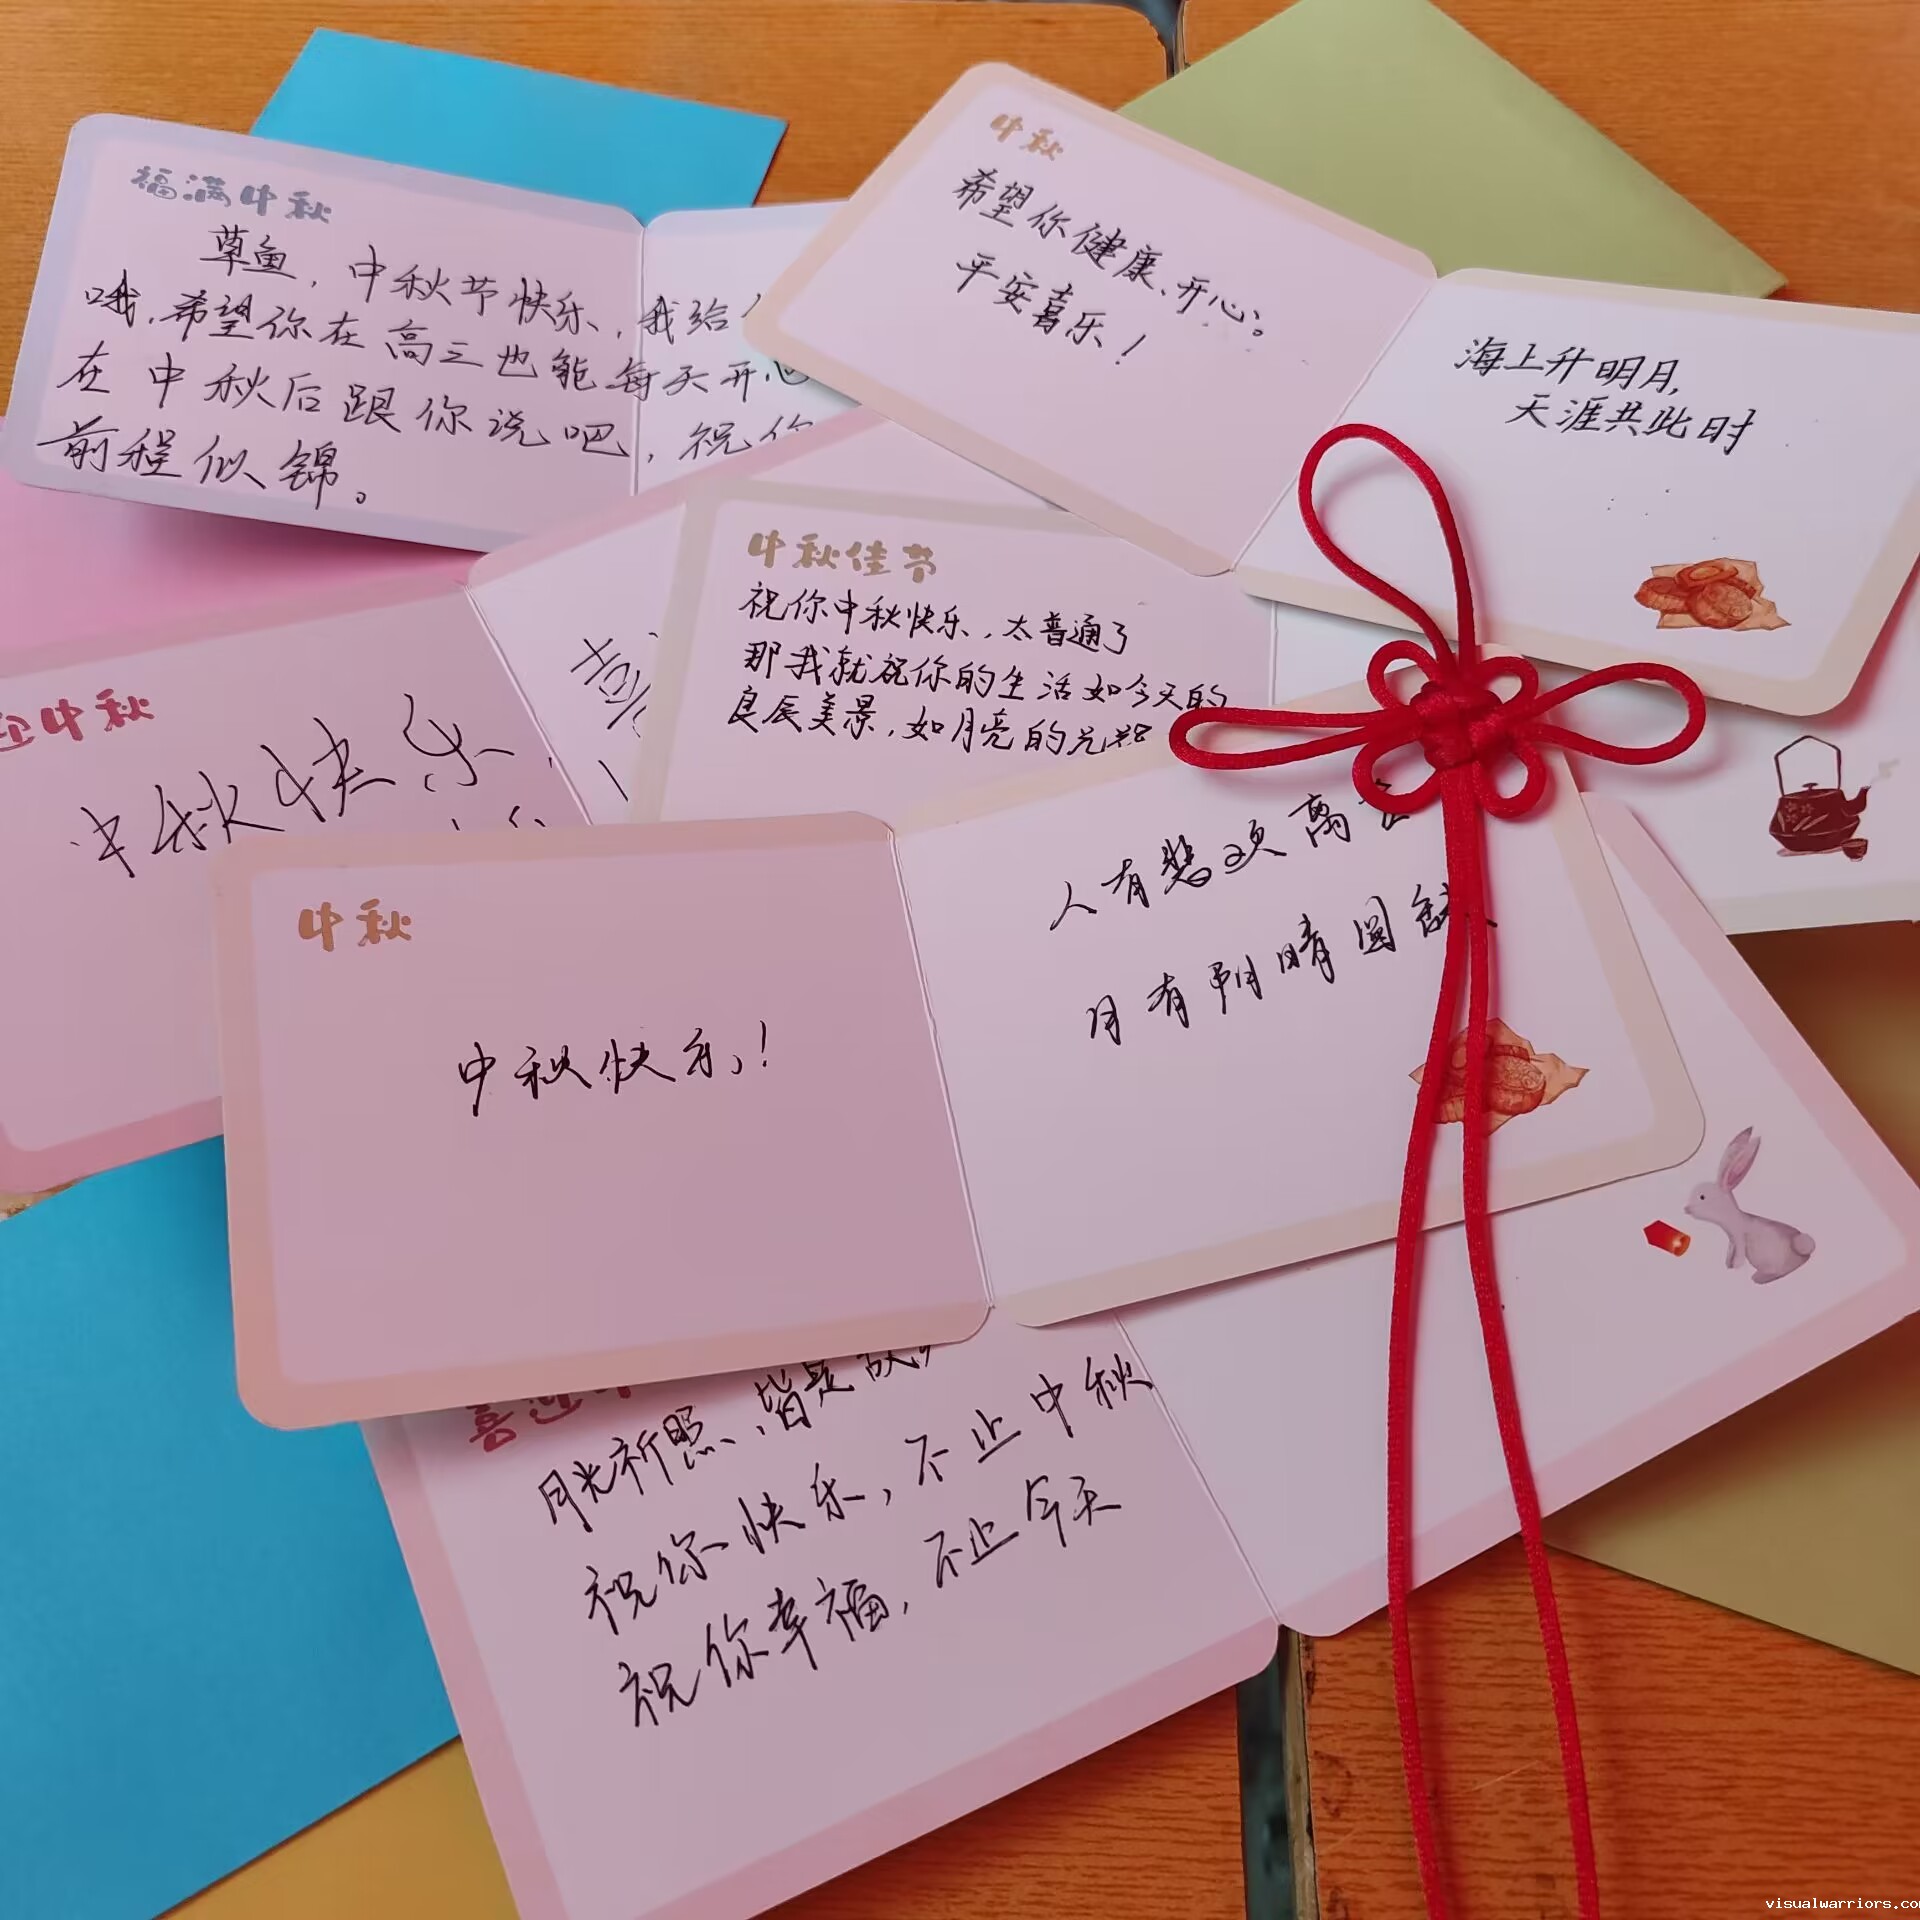 福满中秋
草鱼，中秋节快乐，我给
哦，希望你在高三也能每天开心
在中秋后跟你说吧，祝你
前程似锦。
中秋
希望你健康、开心。
平安喜乐！
海上升明月，
天涯共此时
中秋佳节
祝你中秋快乐，太普通了
那我就祝你的生活如今天的
良辰美景，如月亮的光
迎中秋
中秋快乐，
喜
中秋
中秋快乐！
人有悲欢离合
月有阴晴圆缺
喜迎中
月光祈照、皆是故
祝你快乐，不止中秋
祝你幸福，不止今天
visualwarriors.co